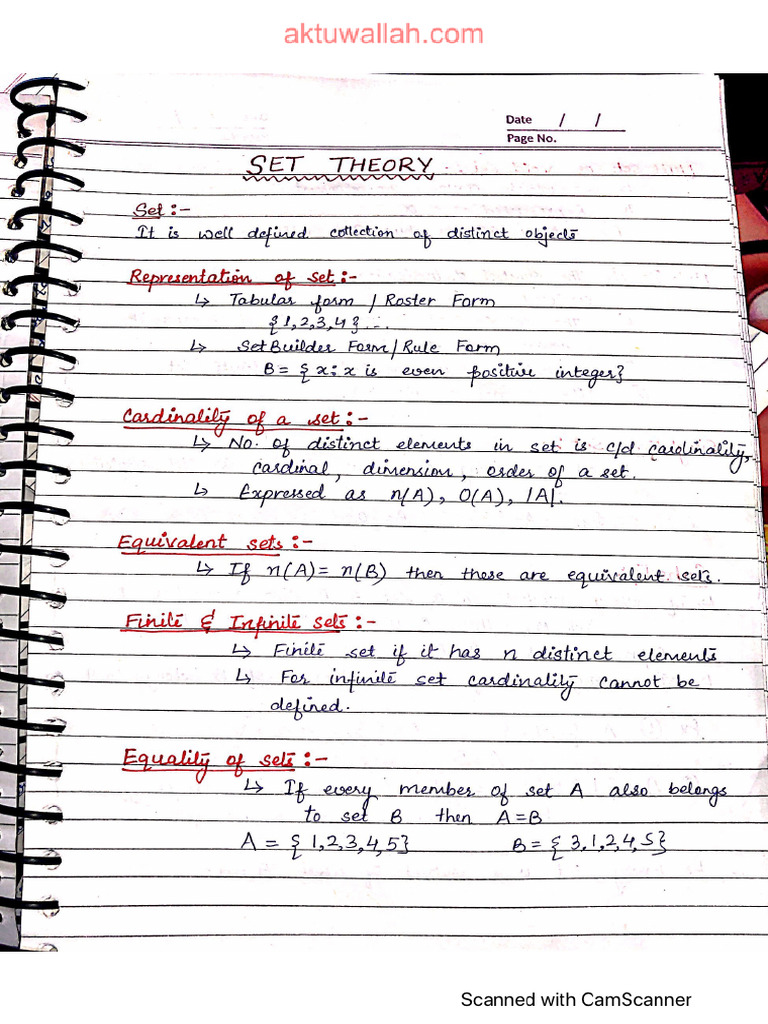 aktuwallah.com
Date / /
Page No.
SET THEORY
Set :-
It is well defined collection of distinct objects
Representation of set :-
↳ Tabular form / Roster Form
{1,2,3,4} ...
↳ Set Builder Form / Rule Form
B = {x : x is even positive integer}
Cardinality of a set :-
↳ No. of distinct elements in set is c/d cardinality,
cardinal, dimension, order of a set.
↳ Expressed as n(A), O(A), |A|.
Equivalent sets :-
↳ If n(A) = n(B) then these are equivalent sets.
Finite & Infinite sets :-
↳ Finite set if it has n distinct elements
↳ For infinite set cardinality cannot be
defined.
Equality of sets :-
↳ If every member of set A also belongs
to set B then A = B
A = {1,2,3,4,5} B = {3,1,2,4,5}
Scanned with CamScanner